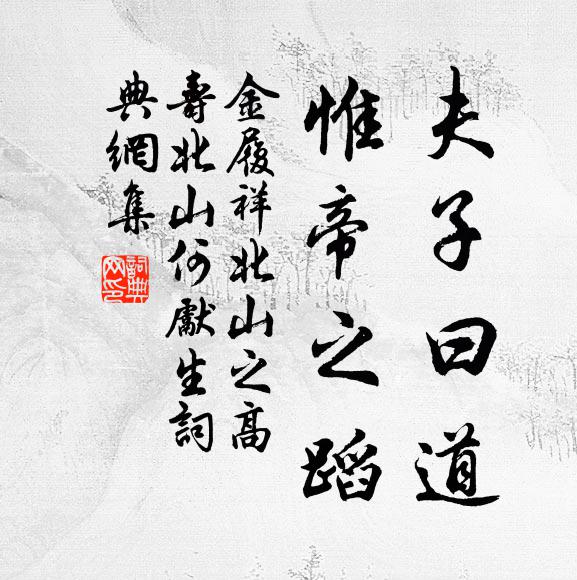 夫子曰道
惟帝之蹈
金履祥北山之高
壽北山何獻生詞
典網集
詞典
网印